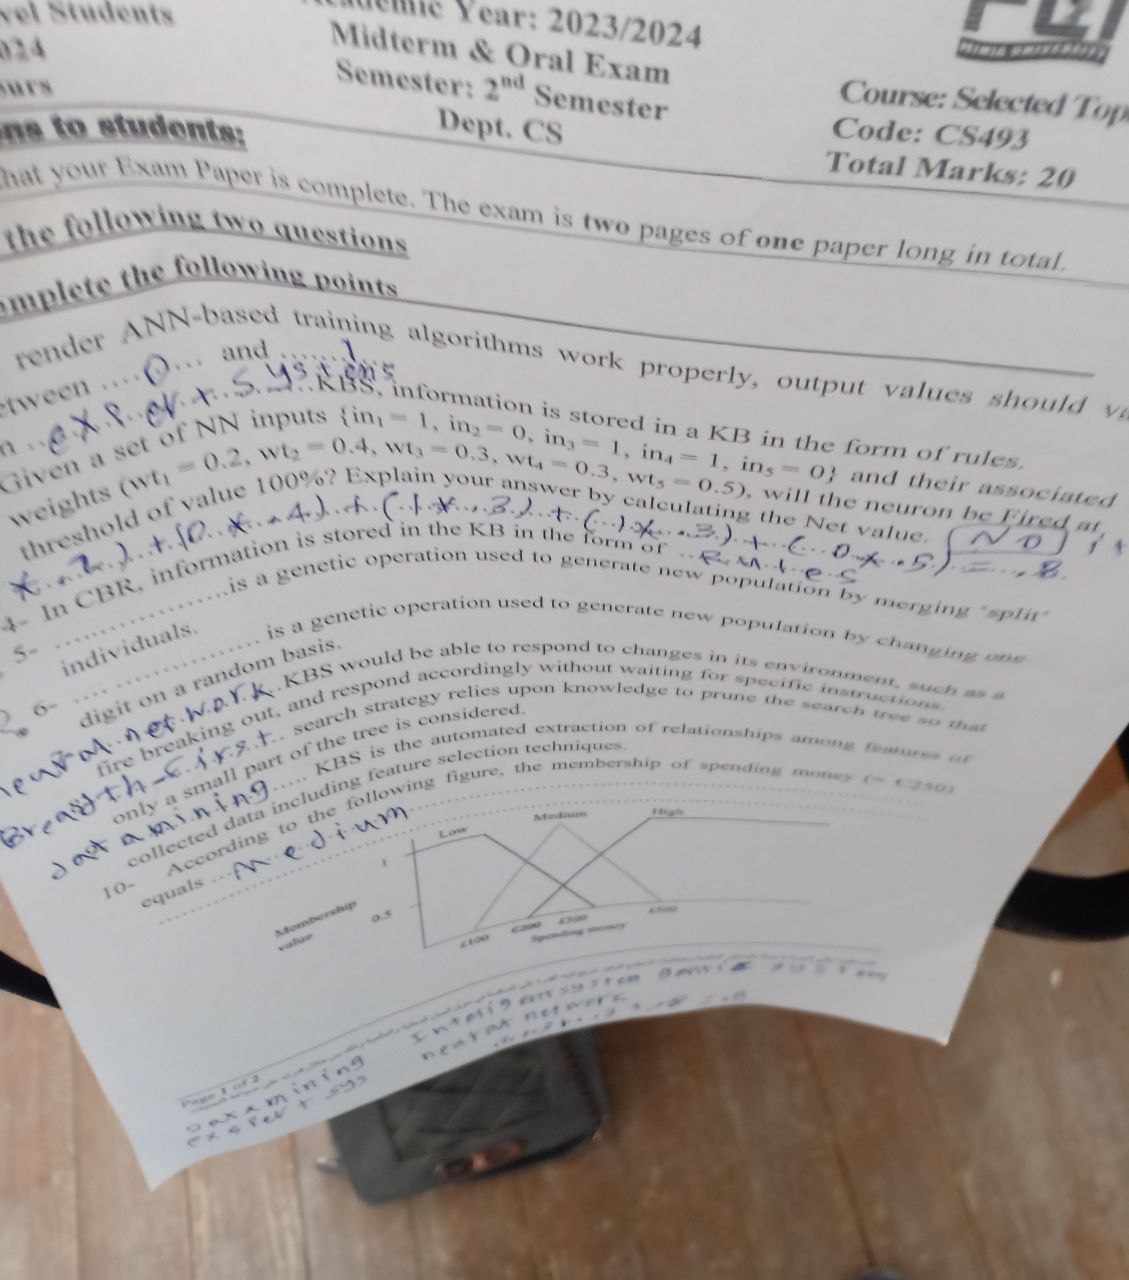 vel Students
Academic Year: 2023/2024
024
Midterm & Oral Exam
MINIA UNIVERSITY
Semester: 2nd Semester
Course: Selected Top
Dept. CS
Code: CS493
Total Marks: 20
ons to students:
hat your Exam Paper is complete. The exam is two pages of one paper long in total.
the following two questions
omplete the following points
render ANN-based training algorithms work properly, output values should va
etween ....0... and ......1...
n ..expert systems..KBS, information is stored in a KB in the form of rules.
Given a set of NN inputs {in1 = 1, in2 = 0, in3 = 1, in4 = 1, in5 = 0} and their associated
weights (wt1 = 0.2, wt2 = 0.4, wt3 = 0.3, wt4 = 0.3, wt5 = 0.5), will the neuron be Fired at
threshold of value 100%? Explain your answer by calculating the Net value. NO
* .2) + (0 * .4) + (1 * .3) + (1 * .3) + (0 * .5) = .8
4- In CBR, information is stored in the KB in the form of ..Rules
5- ....................is a genetic operation used to generate new population by merging "split"
individuals.
6- .................... is a genetic operation used to generate new population by changing one
digit on a random basis.
neural network KBS would be able to respond to changes in its environment, such as a
fire breaking out, and respond accordingly without waiting for specific instructions.
Breasth-first.. search strategy relies upon knowledge to prune the search tree so that
only a small part of the tree is considered.
data mining.... KBS is the automated extraction of relationships among features of
collected data including feature selection techniques.
10- According to the following figure, the membership of spending money (= £250)
equals ...medium
Low Medium High
1
Membership value
0.5
£100 £200 £300 £500
Spending money
neural network
Page 1 of 2